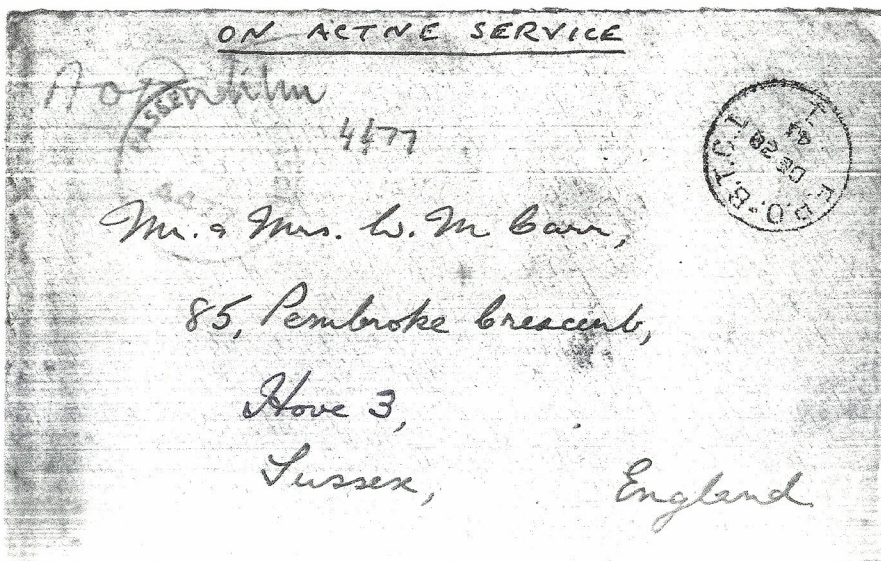 ON ACTIVE SERVICE
PASSED
4477
F.P.O. B.T.C.1
DE 28
43
Mr. & Mrs. W. M Carr,
85, Pembroke Crescent,
Hove 3,
Sussex,
England